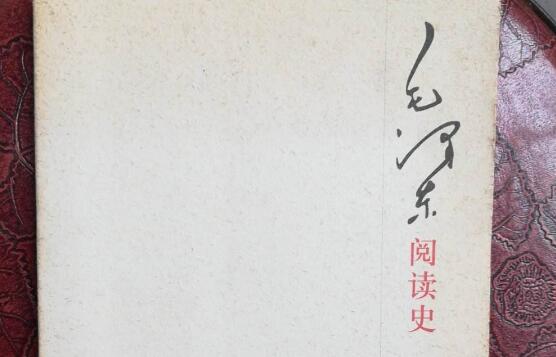 毛泽东
阅读史